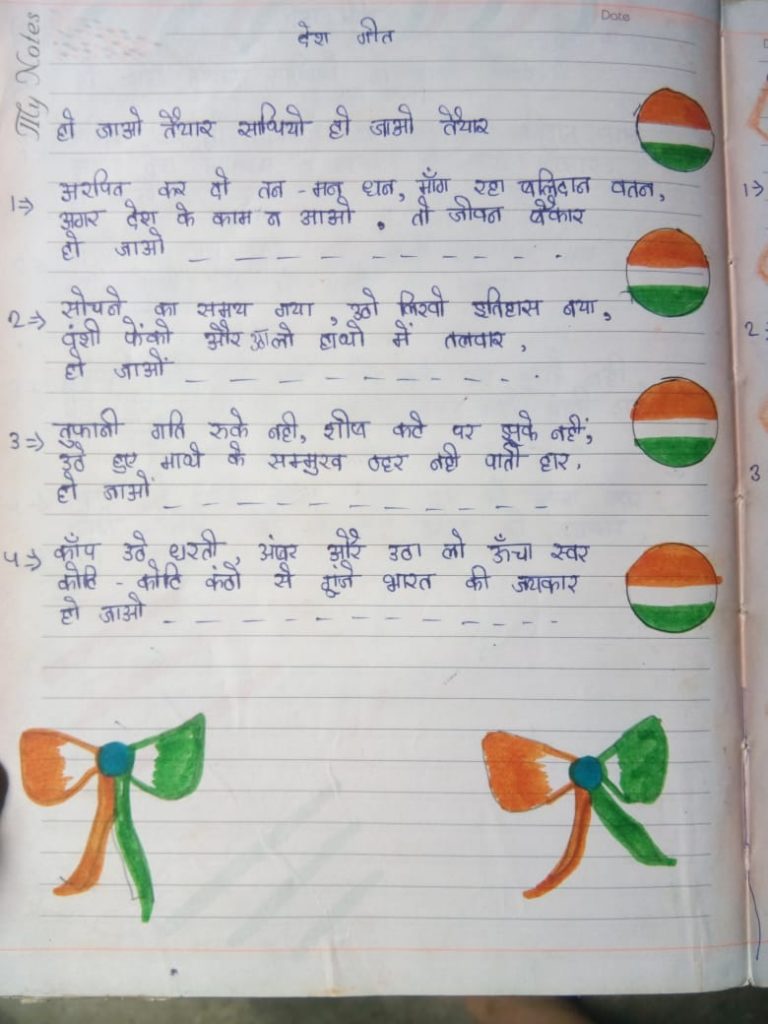 My Notes
Date
देश गीत
हो जाओ तैयार साथियो हो जाओ तैयार
1⇒ अरपित कर दो तन - मन धन, माँग रहा बलिदान वतन,
अगर देश के काम न आओ, तो जीवन बेकार
हो जाओ _ _ _ _ _ _ _ _ _ _ _ .
2⇒ सोचने का समय गया, उठो लिखो इतिहास नया,
वंशी फेंको और उठालो हाथो में तलवार,
हो जाओं _ _ _ _ _ _ _ _ _ _ .
3⇒ तुफानी गति रुके नही, शीष कटे पर झुके नहीं,
उठे हुए माथे के सम्मुख ठहर नही पाती हार,
हो जाओं _ _ _ _ _ _ _ _ _ _ _ _
4⇒ काँप उठे धरती, अंबर और उठा लो ऊँचा स्वर
कोटि - कोटि कंठो से गूंजे भारत की जयकार
हो जाओ _ _ _ _ _ _ _ _ _ _ _ _ _
1⇒
2
3